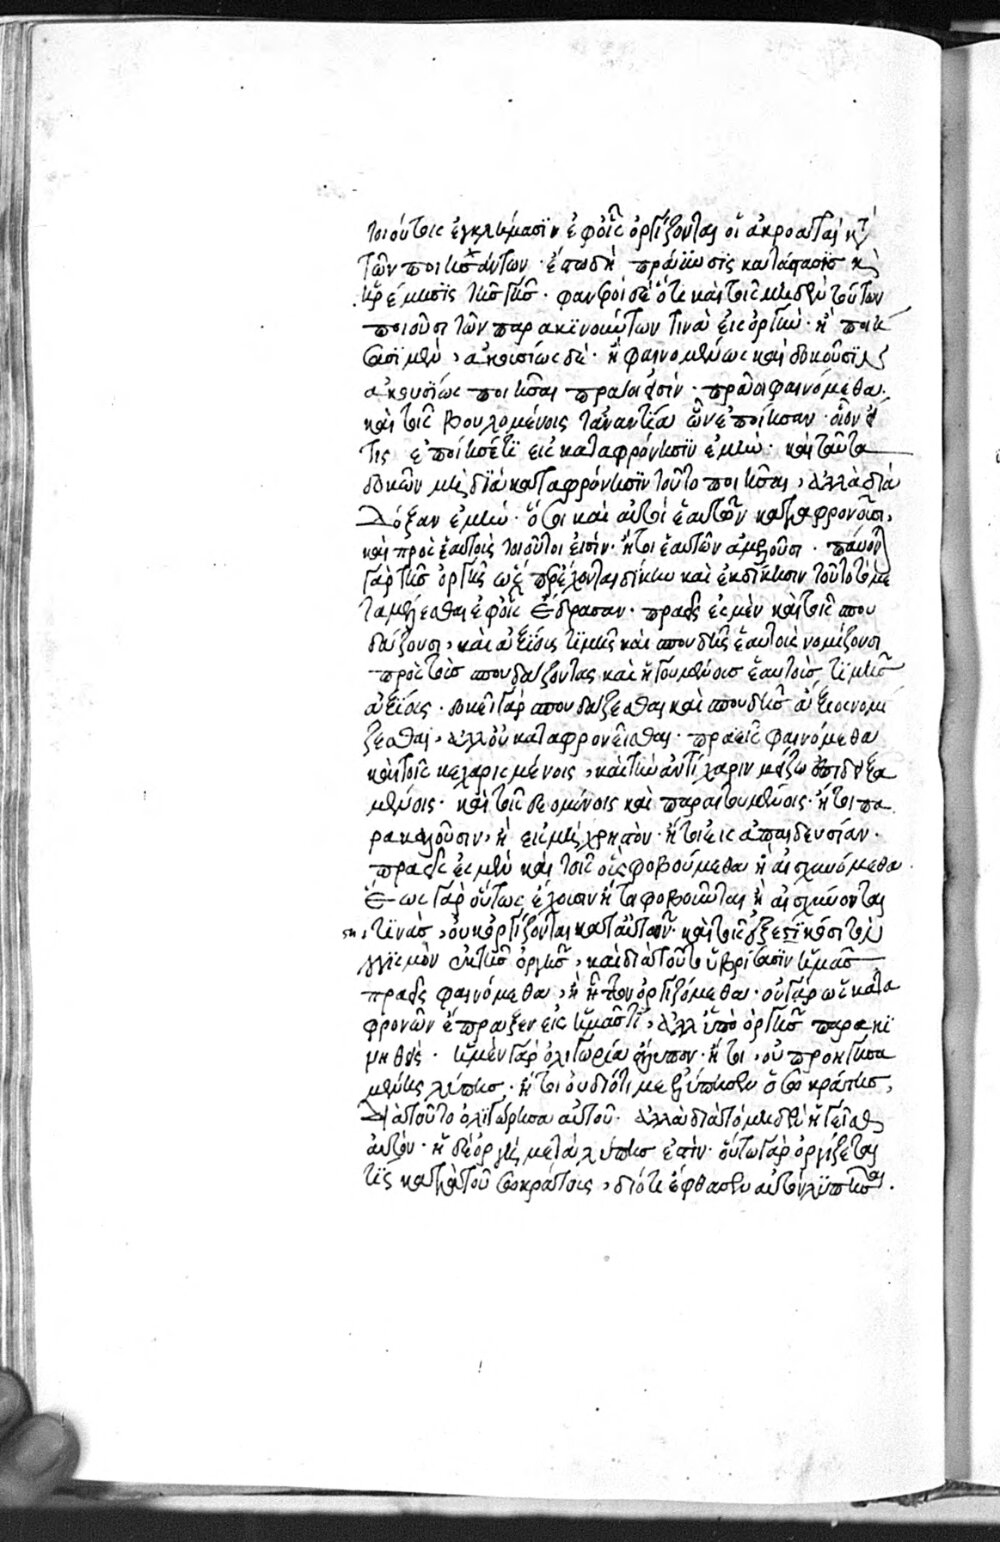 τοιούτοις ἐγκλήμασιν ἐφ' οἷς ὀργίζονται οἱ ἀκροαταὶ κατὰ
τῶν ποιησάντων. ἐπειδὴ πράϋνσις κατάστασις καὶ
ἠρέμησις τῆς ὀργῆς. φανεροὶ δὲ ὅτι καὶ τοῖς μηδὲν τούτων
ποιοῦσι τῶν παρακινούντων τινὰ εἰς ὀργήν. ἢ ποιή
σασι μὲν, ἀκουσίως δὲ. ἢ φαινομένως καὶ δοκοῦσιν
ἀκουσίως ποιῆσαι πρᾶοι εἰσίν. πρᾶοι φαινόμεθα
καὶ τοῖς βουλομένοις τἀναντία ὧν ἐποίησαν. οἷον εἴ
τις ἐποίησέ τι εἰς καταφρόνησιν ἐμὴν. καὶ ταῦτα
δοκῶν μὴ διὰ καταφρόνησιν τοῦτο ποιῆσαι, ἀλλὰ διὰ
δόξαν ἐμήν. ὅσοι καὶ αὐτοὶ ἑαυτῶν καταφρονοῦσι,
καὶ πρὸς ἑαυτοὺς τοιοῦτοι εἰσὶν. ἤτοι ἑαυτῶν ἀμελοῦσι.
γὰρ τῆς ὀργῆς ὡς δίκην καὶ ἐκδίκησιν τοῦτο τὸ με
ταμέλεσθαι ἐφ' οἷς ἔδρασαν. πρᾶος ἐσμὲν καὶ τοῖς σπου
δάζουσι, καὶ ἀξίους τιμῆς καὶ σπουδῆς ἑαυτοὺς νομίζουσι
πρὸς τοὺς σπουδάζοντας καὶ ἡγουμένους ἑαυτοὺς τιμῆς
ἀξίους. δοκεῖ γὰρ σπουδάζεσθαι καὶ σπουδῆς ἄξιος νομί
ζεσθαι, ἀλλ' οὐ καταφρονεῖσθαι. πρᾶοι φαινόμεθα
καὶ τοῖς κεχαρισμένοις, καὶ τὴν ἀντίχαριν μείζω
καὶ τοῖς δεομένοις καὶ παραιτουμένοις. ἤτοι πα
ρακαλοῦσιν, ἢ εἰς μὴ χρηστὸν. ἤτοι εἰς ἀπαιδευσίαν.
πρᾶος ἐσμὲν καὶ τοῖς οὓς φοβούμεθα ἢ αἰσχυνόμεθα
ἕως γὰρ οὕτως ἔχουσιν ἤτοι φοβοῦνται ἢ αἰσχύνονται
τινὰς, οὐκ ὀργίζονται κατ' αὐτῶν. καὶ τοῖς
ἐκ τῆς ὀργῆς, καὶ διὰ τοῦτο ὑβρίσασιν ἡμᾶς
πρᾶος φαινόμεθα, ἢ ἧττον ὀργιζόμεθα. οὐ γὰρ ὡς κατα
φρονῶν ἔπραξεν εἰς ἡμᾶς τί, ἀλλ' ὑπὸ ὀργῆς παρακι
νηθεὶς. ἡ μὲν γὰρ ὀλιγωρία ἄλυπον. ἤτοι, οὐ προηγησα
μένης λύπης. ἤτοι οὐ διότι με ἐλύπησεν ὁ σωκράτης,
διὰ τοῦτο ὀλιγώρησα αὐτοῦ. ἀλλὰ διὰ τὸ μηδὲν ἡγεῖσθαι
αὐτόν. ἡ δὲ ὀργὴ μετὰ λύπης ἐστίν. οὕτω γὰρ ὀργίζεται
τὶς κατὰ τοῦ σωκράτους, διότι ἔφθασεν αὐτὸν λυπῆσαι.